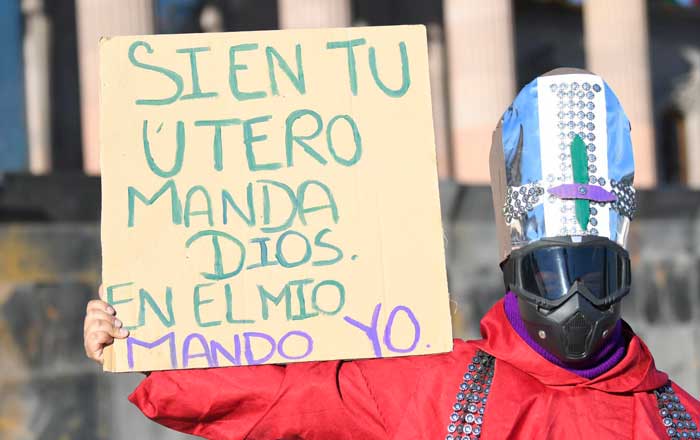 SI EN TU
ÚTERO
MANDA
DIOS.
EN EL MIO
MANDO YO.